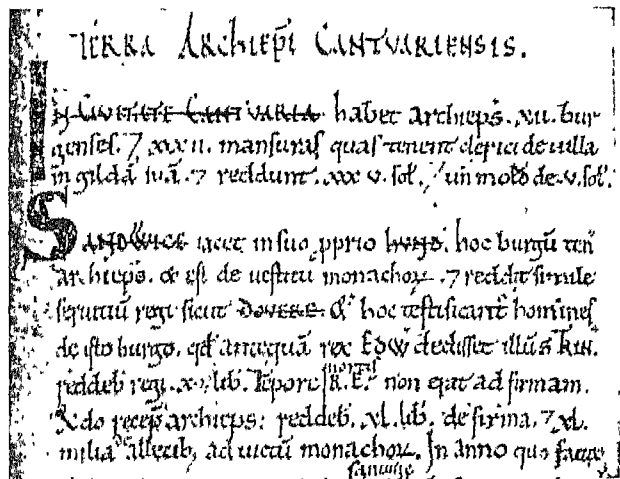 TERRA ARChIEPI CANTVARIENSIS.
IN CIVITATE CANTVARIA habet archieps. xii. bur
genses. ⁊ xxxii. mansuras quas tenent clerici de uilla
in gildā suā. ⁊ reddunt. xxxv. sol. ⁊ un mold de. v. sol.
SANDWICE iacet in suo ꝓprio HUND. hoc burgū ten
archieps. & est de uestitu monachoꝝ. ⁊ reddit simile
seruitiū regi sicut DOVERE. & hoc testificant homines
de isto burgo. qd antequā rex EDW dedisset illud s. TRIN.
reddeb regi. xv. lib. Tēpore R. E. mortis non erat ad firmam.
Qdo recep archieps: reddeb. xl. lib. de firma. ⁊ xl.
milia de allecib; ad uictū monachoꝝ. In anno quo